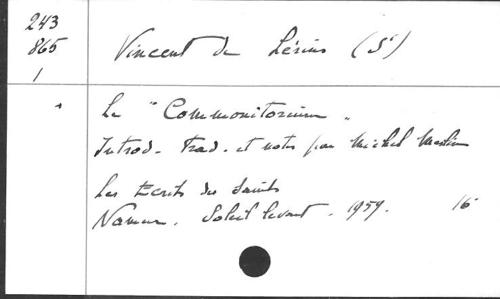 243
865
1
Vincent de Lérins (St)
Le "Commonitorium"
Introd. Trad. et notes par Michel Meslin
Les Ecrits des Saints
Namur. Soleil levant. 1959. 16°